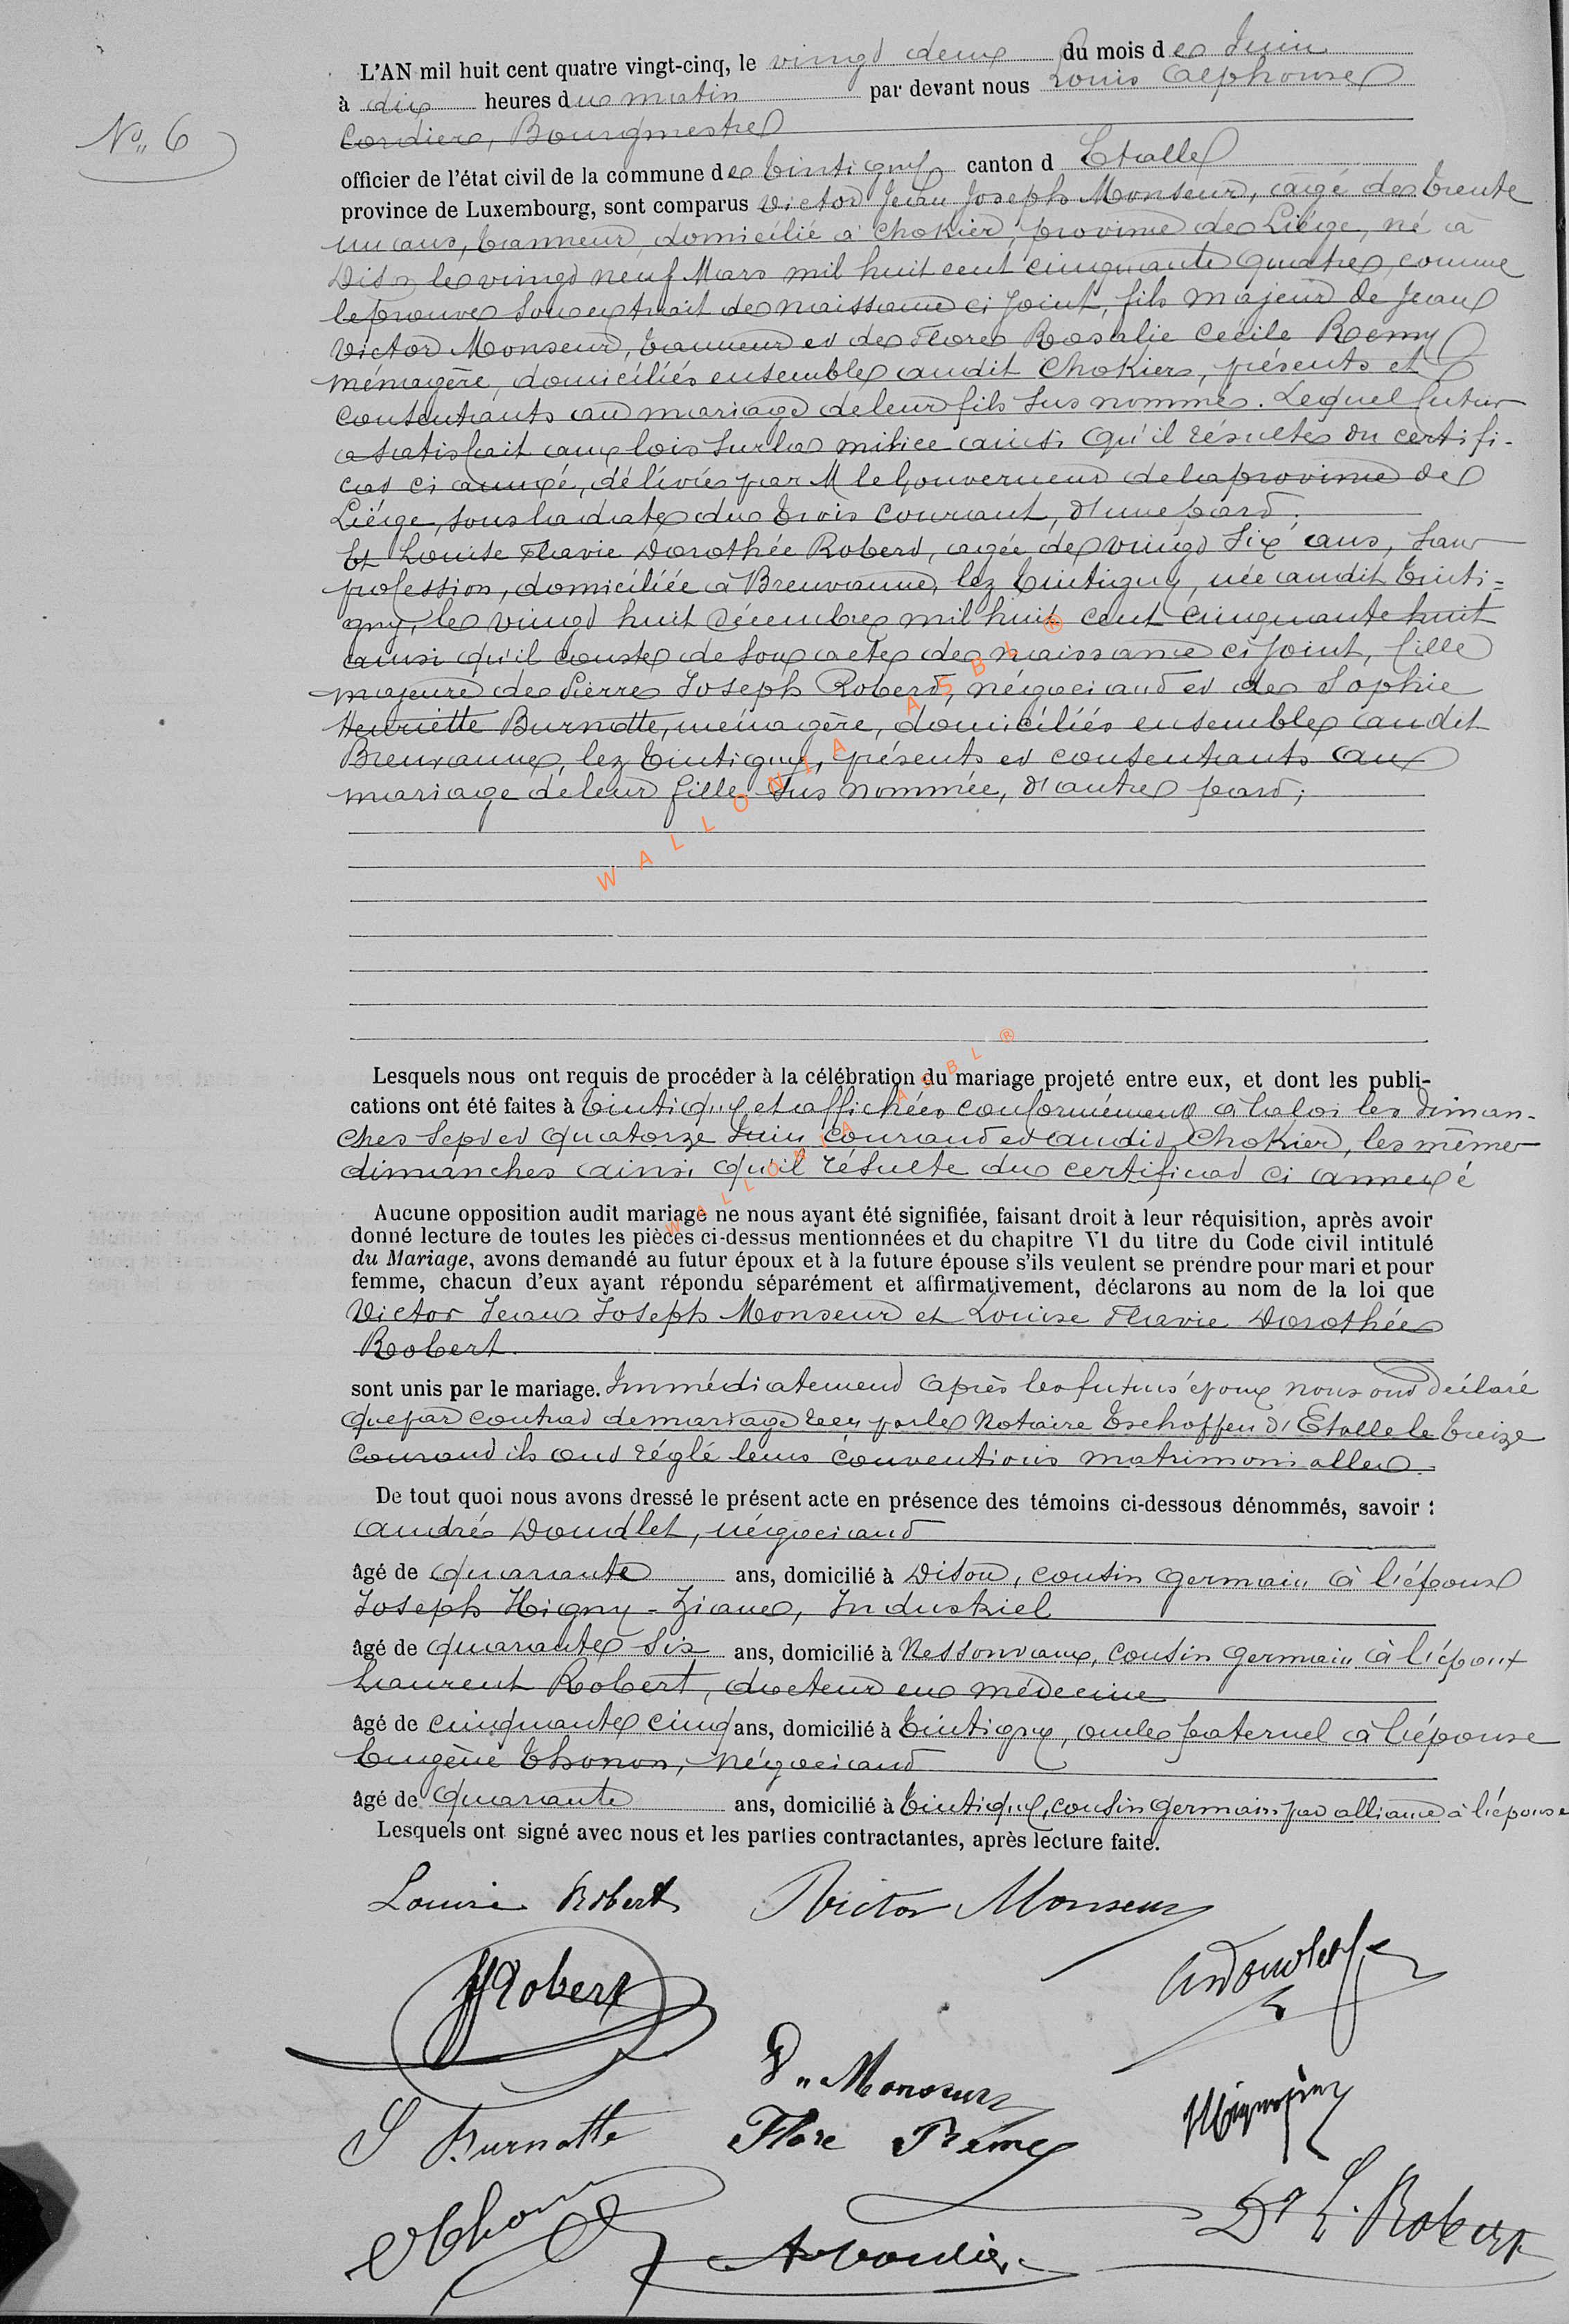 L'AN mil huit cent quatre vingt-cinq, le vingt deux du mois de Juin
à dix heures du matin par devant nous Louis Alphonse
Cordier, Bourgmestre
N° 6
officier de l'état civil de la commune de Tintigny canton d Etalle
province de Luxembourg, sont comparus Victor Jean Joseph Monseur, âgé de trente
un ans, tanneur, domicilié à Chokier, province de Liége, né à
Dison le vingt neuf Mars mil huit cent cinquante quatre, comme
le prouve son extrait de naissance ci joint, fils majeur de Jean
Victor Monseur, tanneur et de Flore Rosalie Cécile Remy
ménagère, domiciliés ensemble audit Chokier, présents et
consentants au mariage de leur fils sus nommé. Lequel futur
a satisfait aux lois sur la milice ainsi qu'il résulte du certifi-
cat ci annexé, délivré par M le Gouverneur de la province de
Liége, sous la date du trois courant, d'une part;
Et Louise Flavie Dorothée Robert, âgée de vingt six ans, sans
profession, domiciliée à Breuvanne, lez Tintigny, née audit Tinti=
gny, le vingt huit Décembre mil huit cent cinquante huit
ainsi qu'il conste de son acte de naissance ci joint, fille
majeure de Pierre Joseph Robert, négociant et de Sophie
Henriette Burnotte, ménagère, domiciliés ensemble audit
Breuvanne, lez Tintigny, présents et consentants au
mariage de leur fille sus nommée, d'autre part;
WALLONIA ASBL ®
Lesquels nous ont requis de procéder à la célébration du mariage projeté entre eux, et dont les publi-
cations ont été faites à Tintigny et affichées conformément à la loi les diman-
ches sept et quatorze Juin courant et audit Chokier, les mêmes
dimanches ainsi qu'il résulte du certificat ci annexé
WALLONIA ASBL ®
Aucune opposition audit mariage ne nous ayant été signifiée, faisant droit à leur réquisition, après avoir
donné lecture de toutes les pièces ci-dessus mentionnées et du chapitre VI du titre du Code civil intitulé
du Mariage, avons demandé au futur époux et à la future épouse s'ils veulent se prendre pour mari et pour
femme, chacun d'eux ayant répondu séparément et affirmativement, déclarons au nom de la loi que
Victor Jean Joseph Monseur et Louise Flavie Dorothée
Robert.
sont unis par le mariage. Immédiatement après les futurs époux nous ont déclaré
que par contrat de mariage reçu par le Notaire Eschoffen d'Etalle le treize
courant ils ont réglé leurs conventions matrimonialles.
De tout quoi nous avons dressé le présent acte en présence des témoins ci-dessous dénommés, savoir :
André Doudlet, négociant
âgé de quarante ans, domicilié à Dison, cousin germain à l'époux
Joseph Higny-Ziane, Industriel
âgé de quarante six ans, domicilié à Nessonvaux, cousin germain à l'époux
Laurent Robert, docteur en médecine
âgé de cinquante cinq ans, domicilié à Tintigny, oncle paternel à l'épouse
Eugène Thonon, Négociant
âgé de quarante ans, domicilié à Tintigny, cousin germain par alliance à l'épouse
Lesquels ont signé avec nous et les parties contractantes, après lecture faite.
Louise Robert Victor Monseur
Robert
V. Monseur
S Burnotte Flore Remy
A Cordier Dr L. Robert